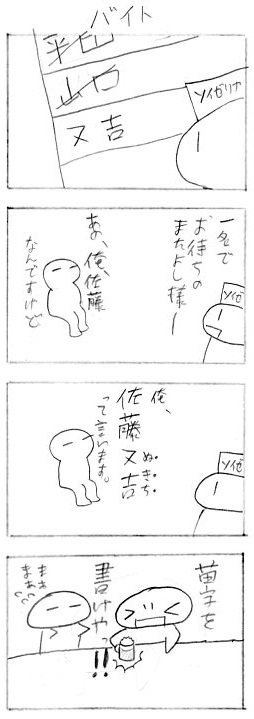 バイト
平田
山口
又吉
ソイゼリナ
一名で
お待ちの
またよし様ー
ソイゼ
あの、俺、佐藤
なんですけど
ソイゼ
俺、
佐藤又吉
ぬきち
って言います。
苗字を
書けやっ
!!
まぁ
まぁ